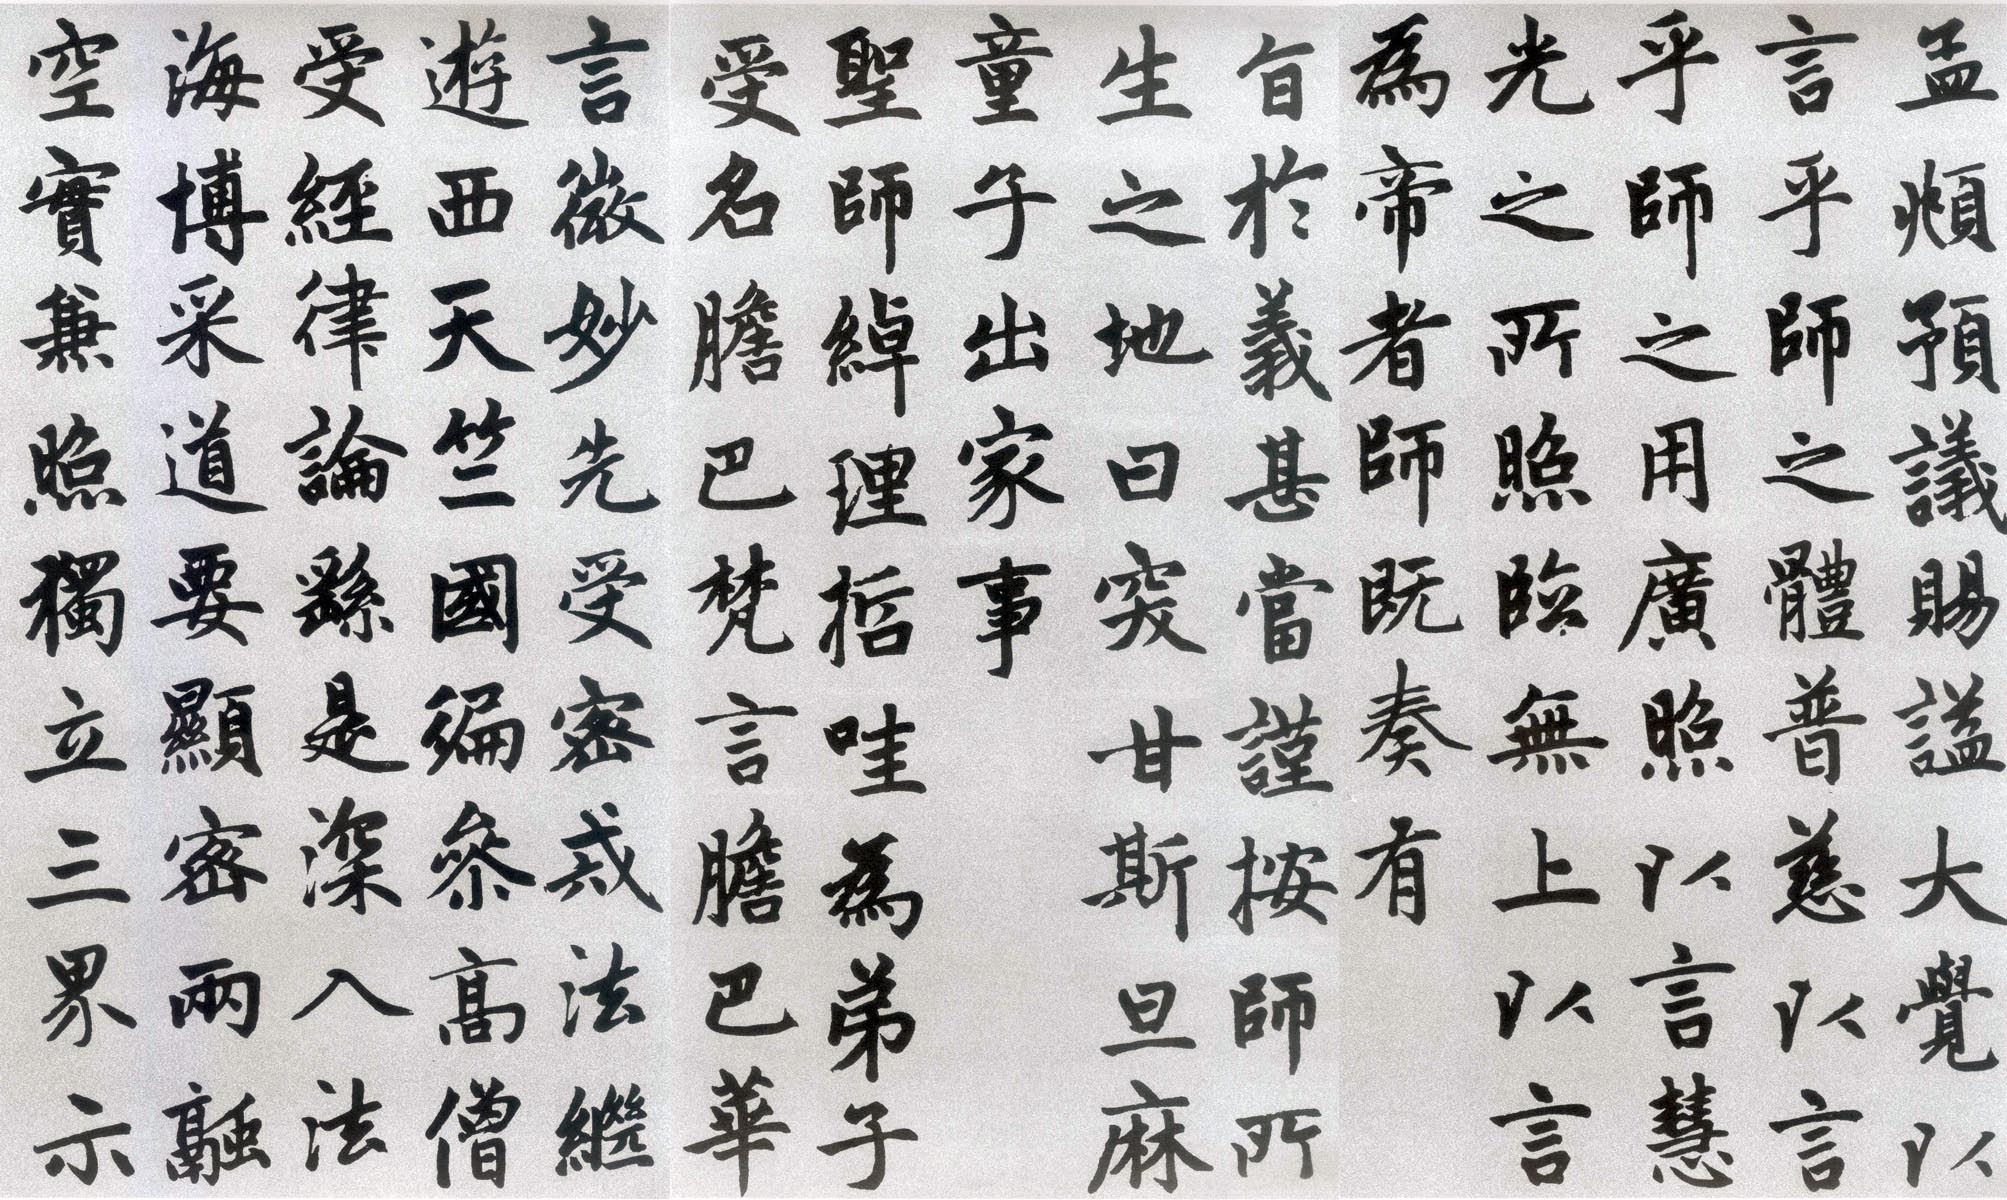 孟頫預議賜謚大覺以
言乎師之體普慈以言
乎師之用廣照以言慧
光之所照臨無上以言
為帝者師既奏有
旨於義甚當謹按師所
生之地曰突甘斯旦麻
童子出家事
聖師綽理哲哇為弟子
受名膽巴梵言膽巴華
言微妙先受密戒法繼
遊西天竺國徧參高僧
受經律論繇是深入法
海博采道要顯密兩融
空實兼照獨立三界示